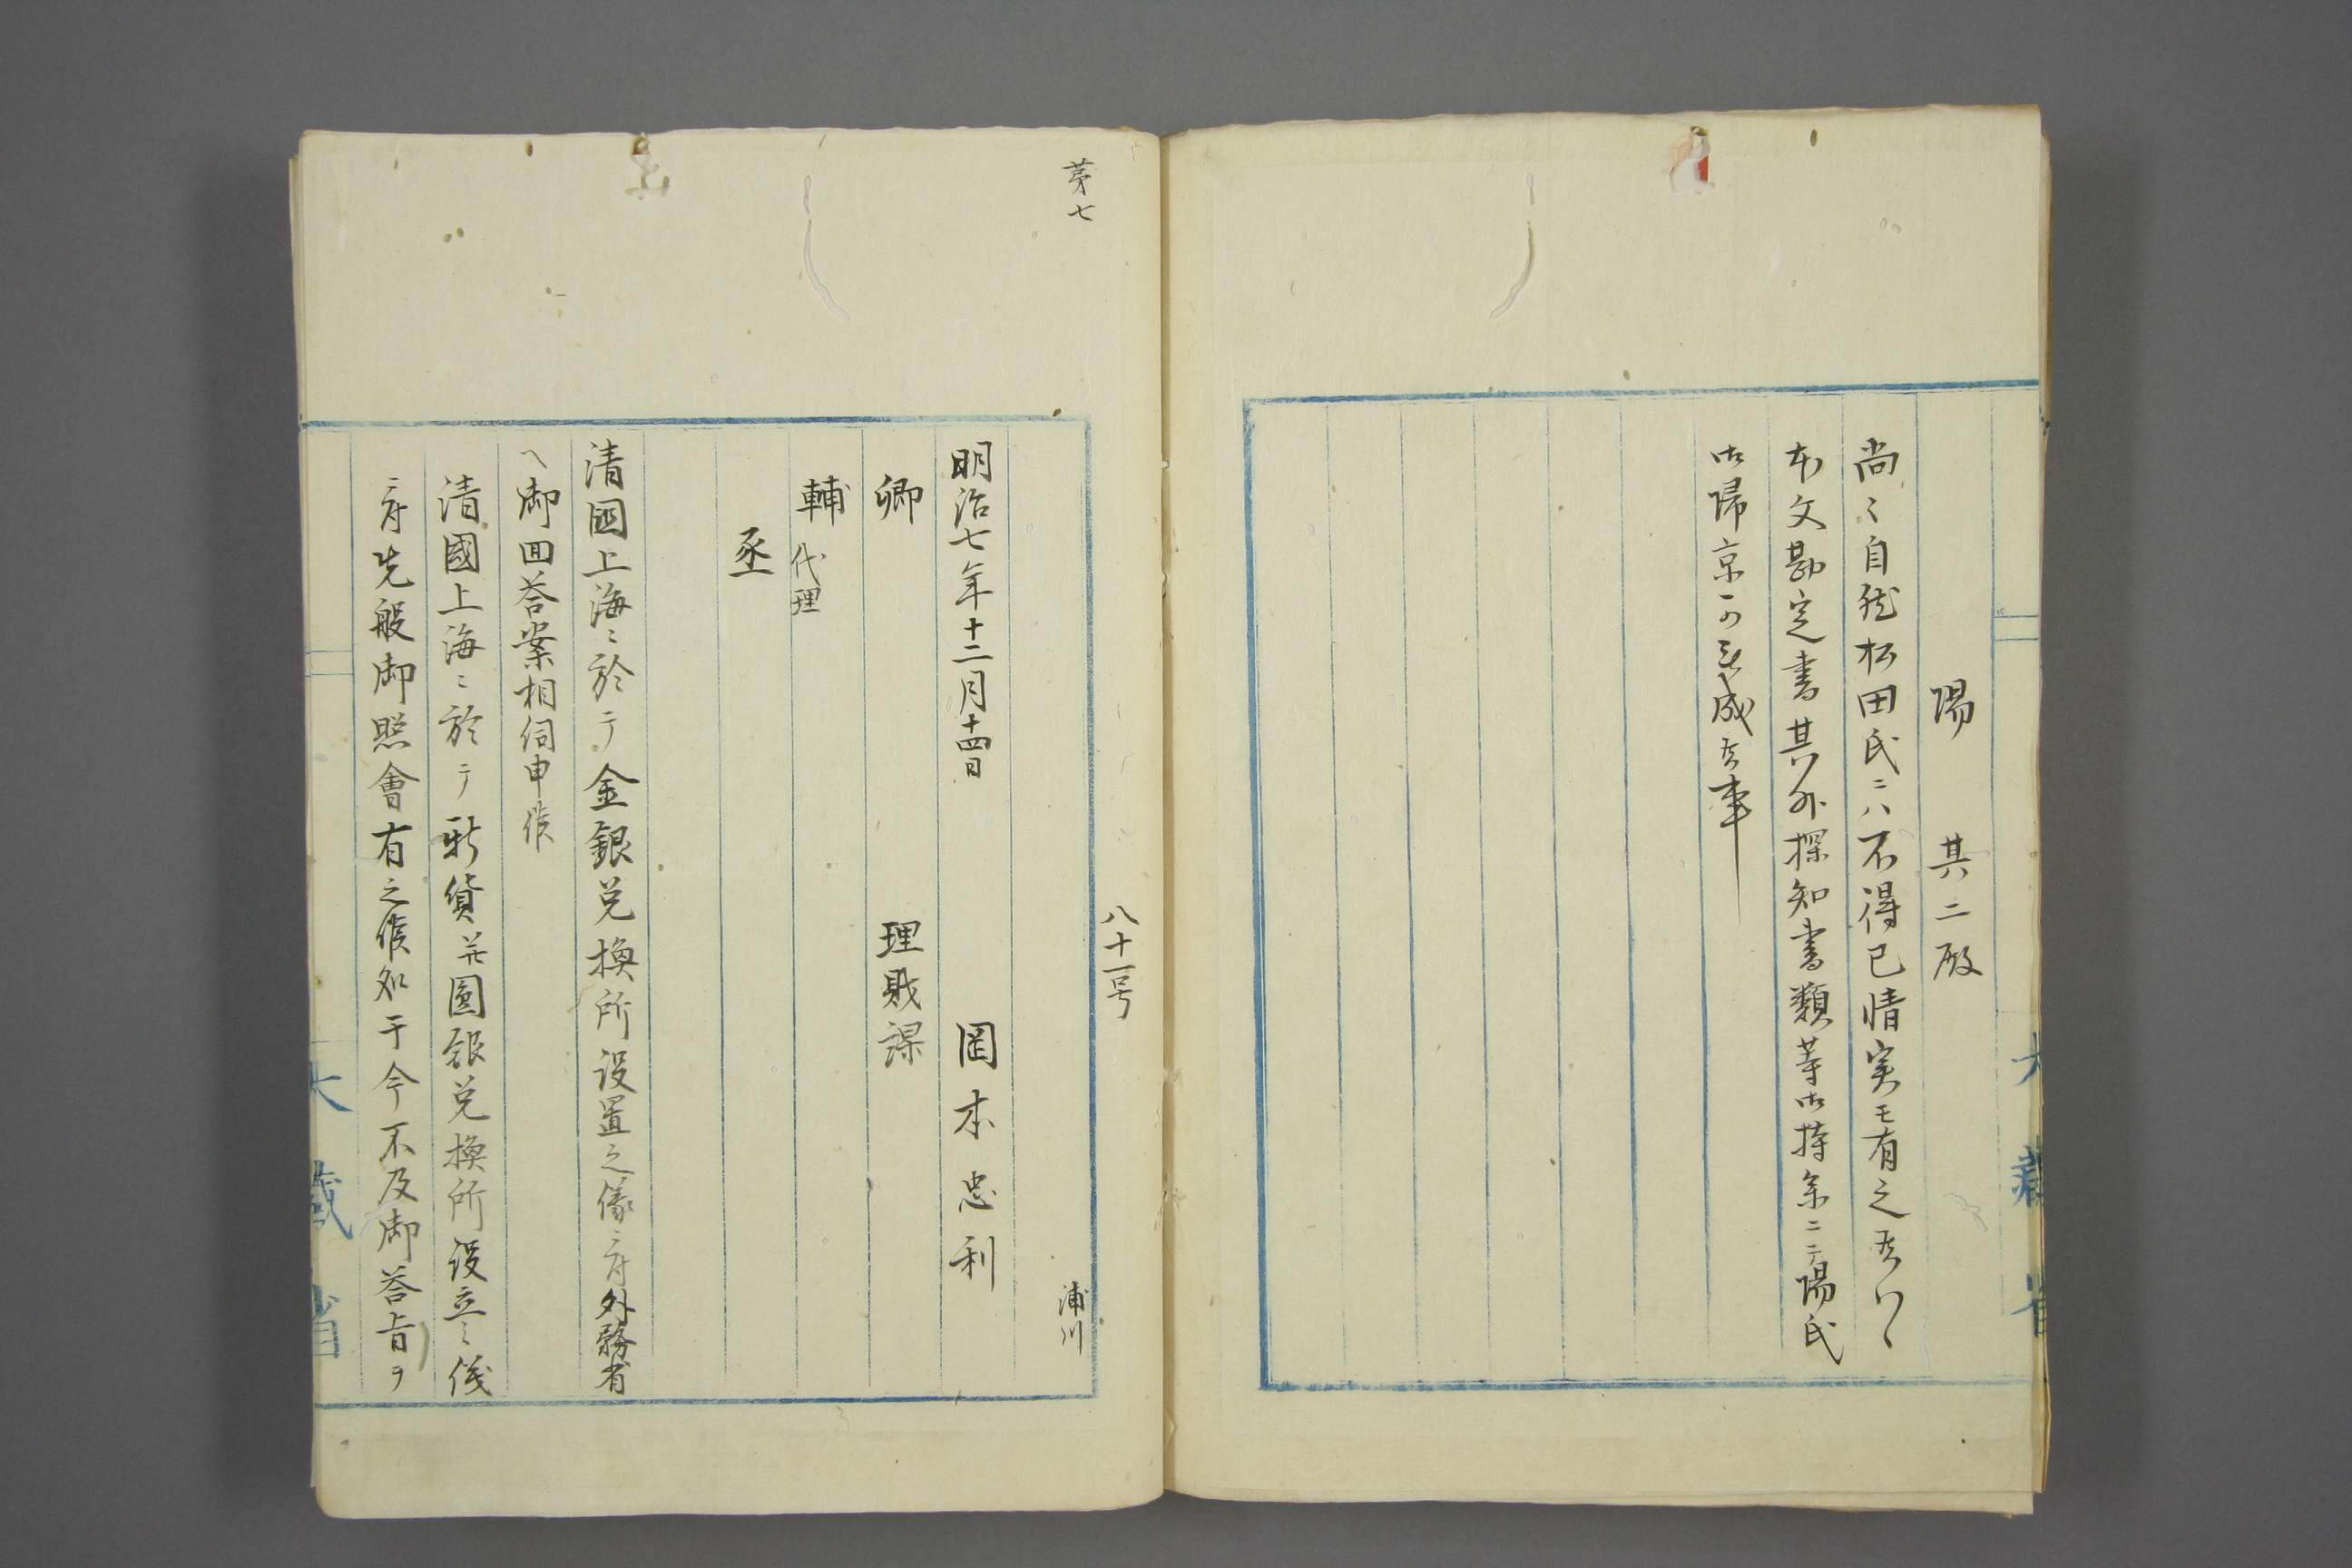 陽其二殿
尚〻自然松田氏ニハ不得已情実モ有之候ハヽ
本文勘定書其外探知書類等御持参ニテ陽氏
御帰京可被成候事
大藏省
第七
八十一号
浦川
明治七年十二月十四日 岡本忠利
卿 理財課
輔代理
丞
清國上海ニ於テ金銀兌換所設置之儀ニ付外務省
ヘ御回答案相伺申候
清國上海ニ於テ新貨并圓銀兌換所設立之儀
ニ付先般御照會有之候処于今不及御答旨ヲ
大藏省